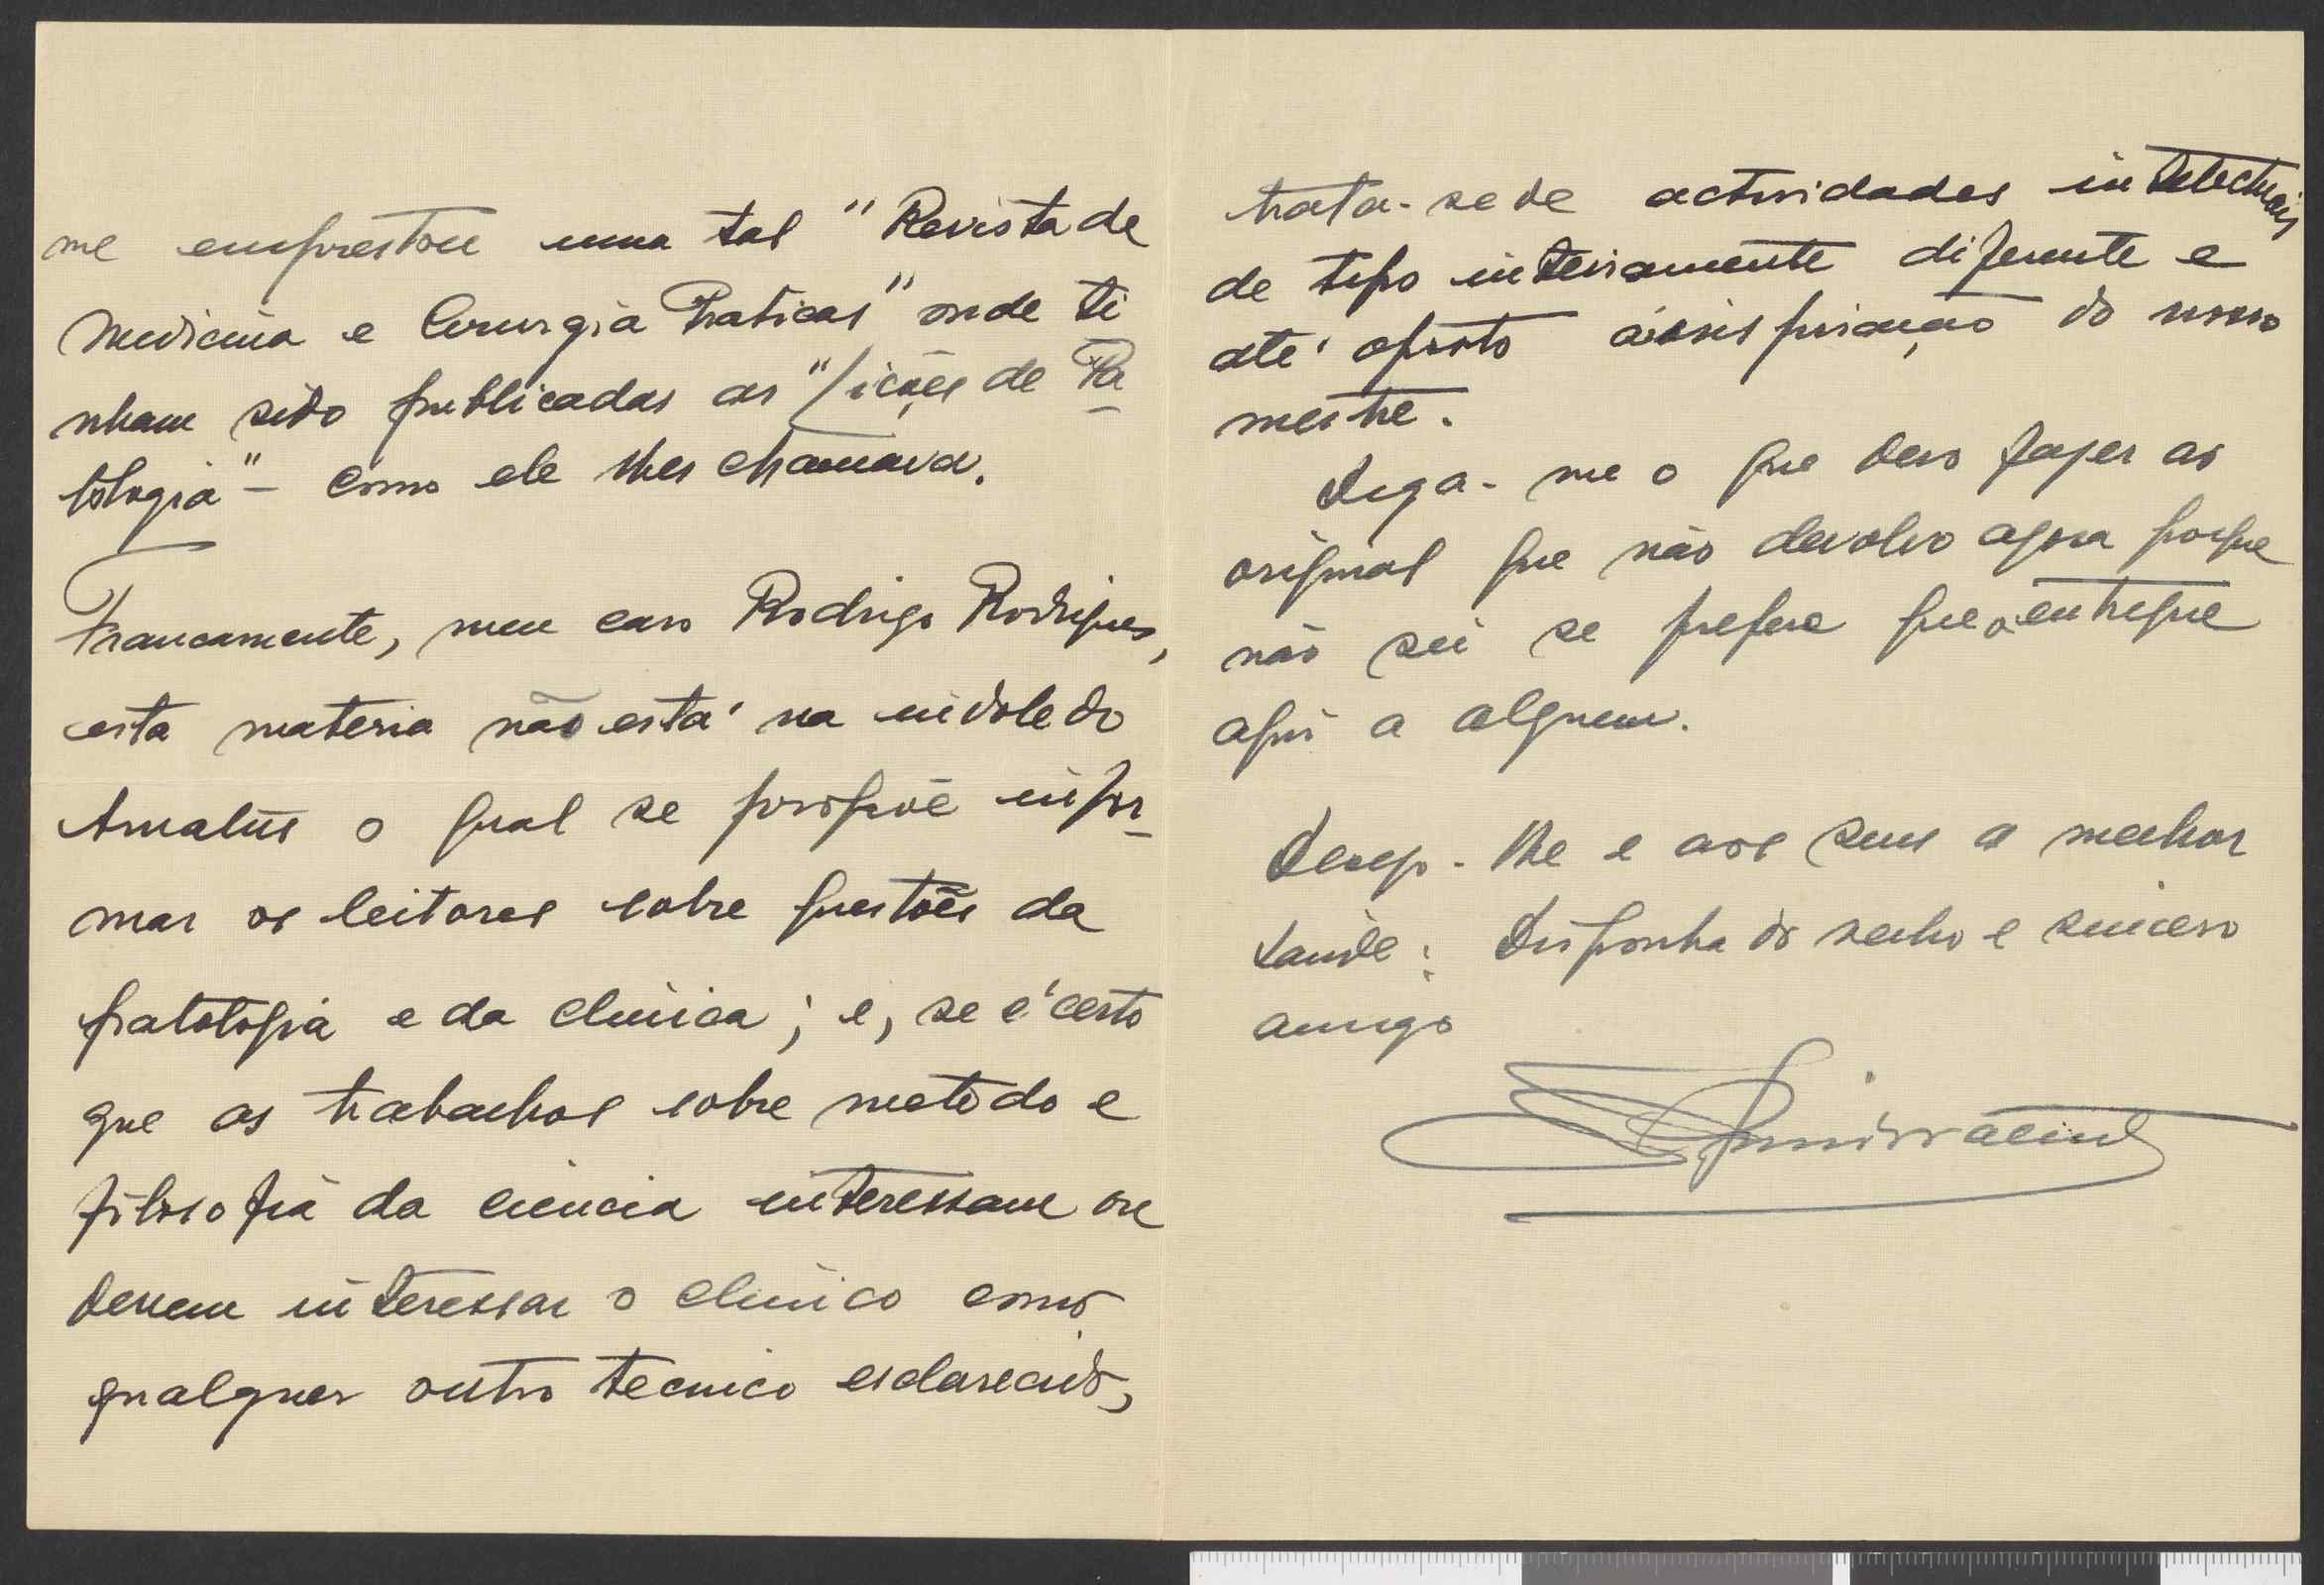 me emprestou uma tal "Revista de
Medicina e Cirurgia Praticas" onde ti
nham sido publicadas as "lições de Pa
tologia" – como ele lhes chamava.
Francamente, meu caro Rodrigo Rodrigues,
esta materia não está na indole do
Amatus o qual se propõe infor-
mar os leitores sobre questões da
patologia e da clinica; e, se é certo
que os trabalhos sobre metodo e
filosofia da ciencia interessam ou
devem interessar o clinico como
qualquer outro tecnico esclarecido,
trata-se de actividades intelectuais
de tipo inteiramente diferente e
até oposto á inspiração do nosso
mestre.
Diga-me o que devo fazer ao
original que não devolvo agora porque
não sei se prefere que o entregue
aqui a alguem.
Desejo-lhe e aos seus a melhor
saude: Disponha do velho e sincero
amigo